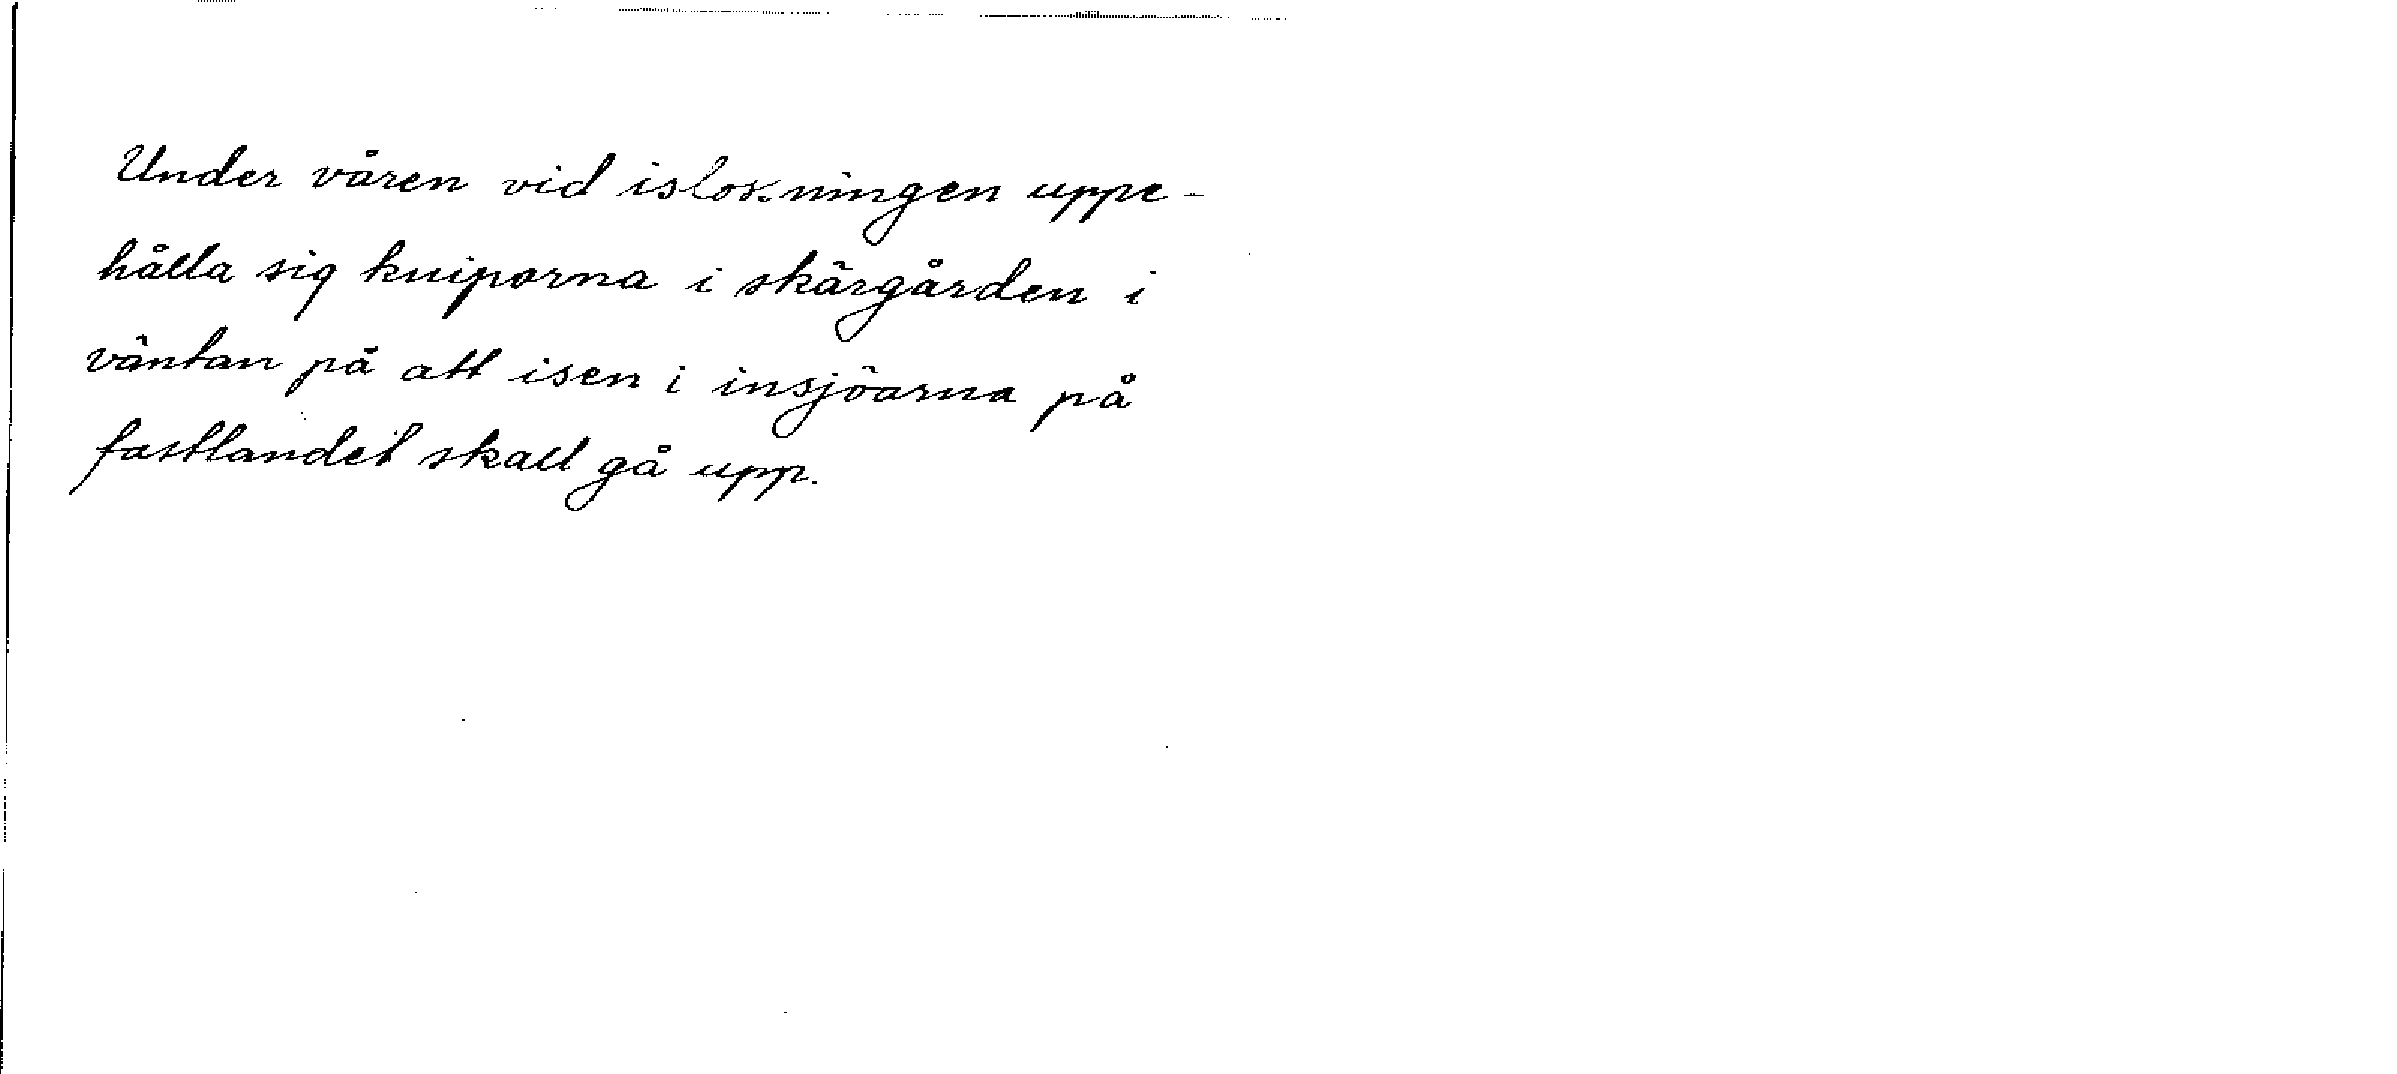 Under våren vid islossningen uppe-
hålla sig kniporna i skärgården i
väntan på att isen i insjöarna på
fastlandet skall gå upp.